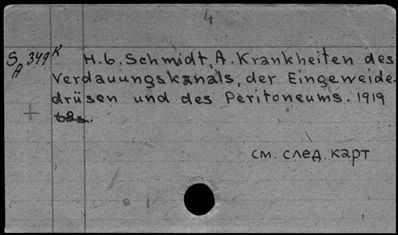 4
S 349 R
A
H. 6. Schmidt, A. Krankheiten des
Verdauungskanals, der Eingeweide-
drüsen und des Peritoneums. 1919
см. след. карт